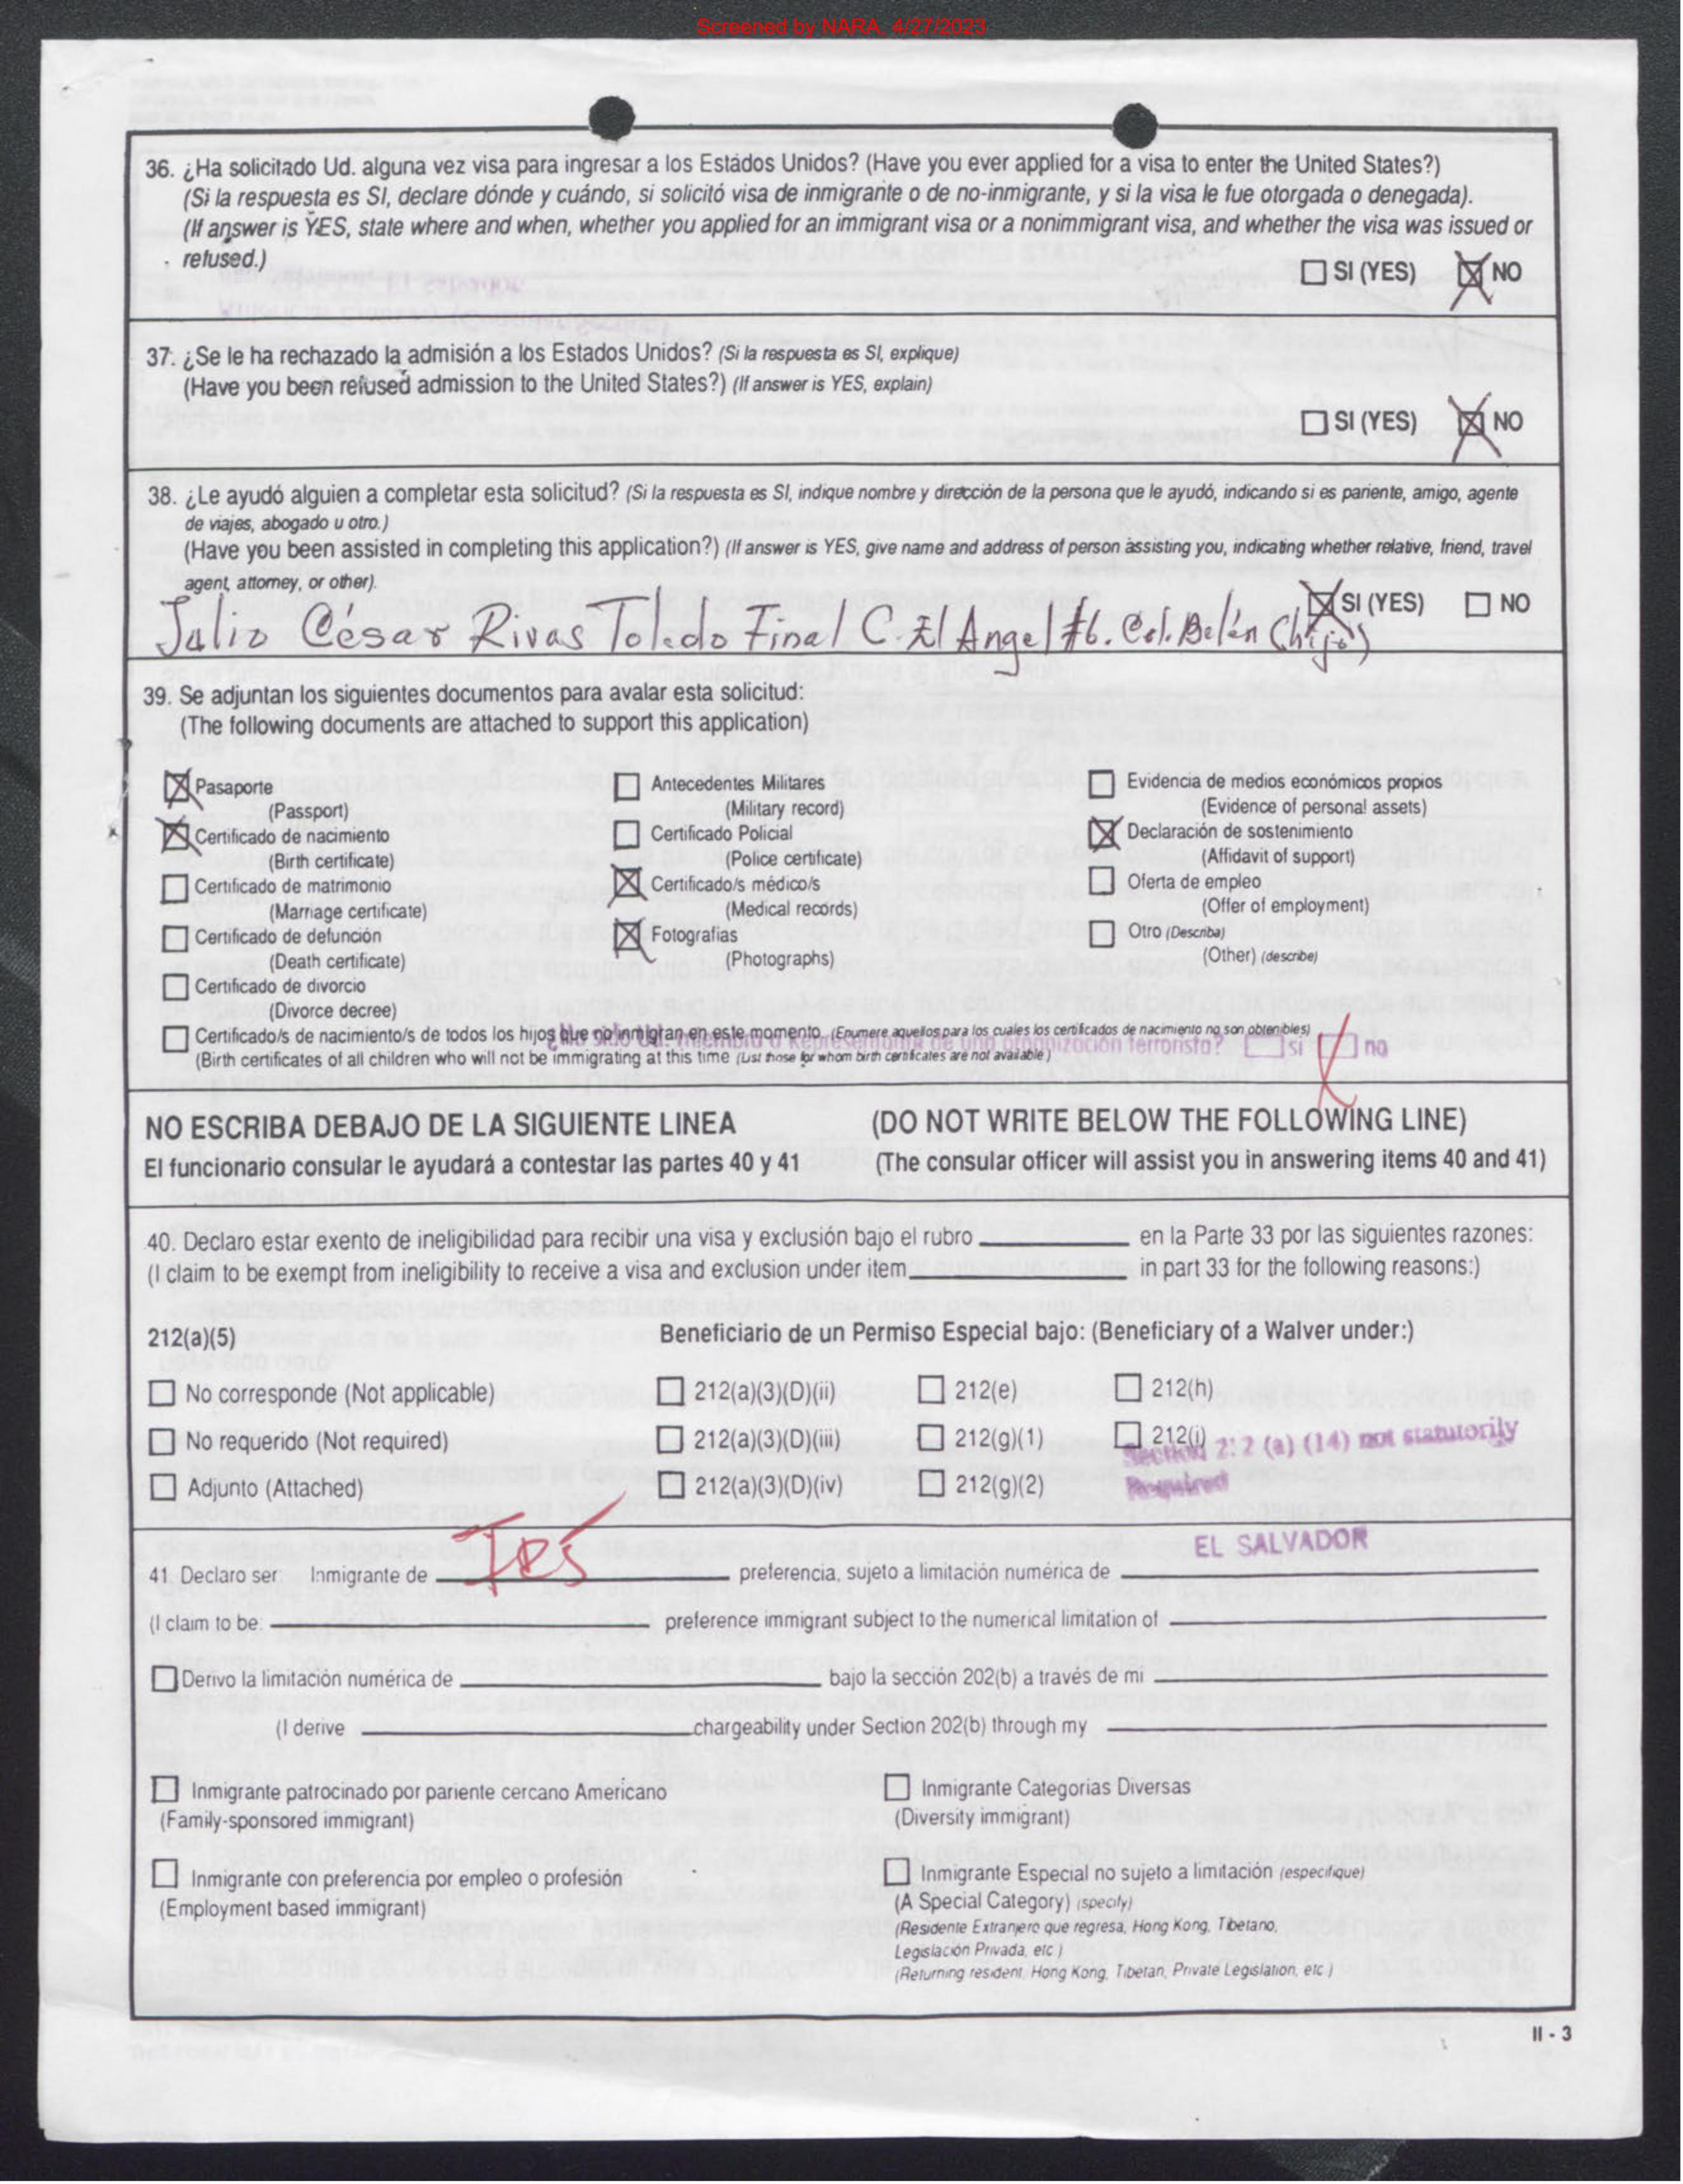 Screened by NARA, 4/27/2023
36. ¿Ha solicitado Ud. alguna vez visa para ingresar a los Estados Unidos? (Have you ever applied for a visa to enter the United States?)
(Si la respuesta es SI, declare dónde y cuándo, si solicitó visa de inmigrante o de no-inmigrante, y si la visa le fue otorgada o denegada).
(If answer is YES, state where and when, whether you applied for an immigrant visa or a nonimmigrant visa, and whether the visa was issued or
refused.)
SI (YES) NO
37. ¿Se le ha rechazado la admisión a los Estados Unidos? (Si la respuesta es SI, explique)
(Have you been refused admission to the United States?) (If answer is YES, explain)
SI (YES) NO
38. ¿Le ayudó alguien a completar esta solicitud? (Si la respuesta es SI, indique nombre y dirección de la persona que le ayudó, indicando si es pariente, amigo, agente
de viajes, abogado u otro.)
(Have you been assisted in completing this application?) (If answer is YES, give name and address of person assisting you, indicating whether relative, friend, travel
agent, attorney, or other).
SI (YES) NO
Julio César Rivas Toledo Final C. El Angel #6. Col. Belén (hijo)
39. Se adjuntan los siguientes documentos para avalar esta solicitud:
(The following documents are attached to support this application)
Pasaporte
(Passport)
Certificado de nacimiento
(Birth certificate)
Certificado de matrimonio
(Marriage certificate)
Certificado de defunción
(Death certificate)
Certificado de divorcio
(Divorce decree)
Antecedentes Militares
(Military record)
Certificado Policial
(Police certificate)
Certificado/s médico/s
(Medical records)
Fotografias
(Photographs)
Evidencia de medios económicos propios
(Evidence of personal assets)
Declaración de sostenimiento
(Affidavit of support)
Oferta de empleo
(Offer of employment)
Otro (Describa)
(Other) (describe)
Certificado/s de nacimiento/s de todos los hijos que no inmigran en este momento (Enumere aquellos para los cuales los certificados de nacimiento no son obtenibles)
¿Ha sido Ud. miembro o Representante de una organización terrorista? si no
(Birth certificates of all children who will not be immigrating at this time (List those for whom birth certificates are not available)
NO ESCRIBA DEBAJO DE LA SIGUIENTE LINEA (DO NOT WRITE BELOW THE FOLLOWING LINE)
El funcionario consular le ayudará a contestar las partes 40 y 41 (The consular officer will assist you in answering items 40 and 41)
40. Declaro estar exento de ineligibilidad para recibir una visa y exclusión bajo el rubro en la Parte 33 por las siguientes razones:
(I claim to be exempt from ineligibility to receive a visa and exclusion under item in part 33 for the following reasons:)
212(a)(5) Beneficiario de un Permiso Especial bajo: (Beneficiary of a Walver under:)
No corresponde (Not applicable) 212(a)(3)(D)(ii) 212(e) 212(h)
No requerido (Not required) 212(a)(3)(D)(iii) 212(g)(1) 212(i)
Adjunto (Attached) 212(a)(3)(D)(iv) 212(g)(2)
Section 212 (a) (14) not statutorily
Required
EL SALVADOR
41. Declaro ser: Inmigrante de preferencia, sujeto a limitación numérica de
(I claim to be: preference immigrant subject to the numerical limitation of
Derivo la limitación numérica de bajo la sección 202(b) a través de mi
(I derive chargeability under Section 202(b) through my
Inmigrante patrocinado por pariente cercano Americano
(Family-sponsored immigrant)
Inmigrante Categorias Diversas
(Diversity immigrant)
Inmigrante con preferencia por empleo o profesión
(Employment based immigrant)
Inmigrante Especial no sujeto a limitación (especifique)
(A Special Category) (specify)
(Residente Extranjero que regresa, Hong Kong, Tibetano,
Legislación Privada, etc.)
(Returning resident, Hong Kong, Tibetan, Private Legislation, etc.)
II - 3